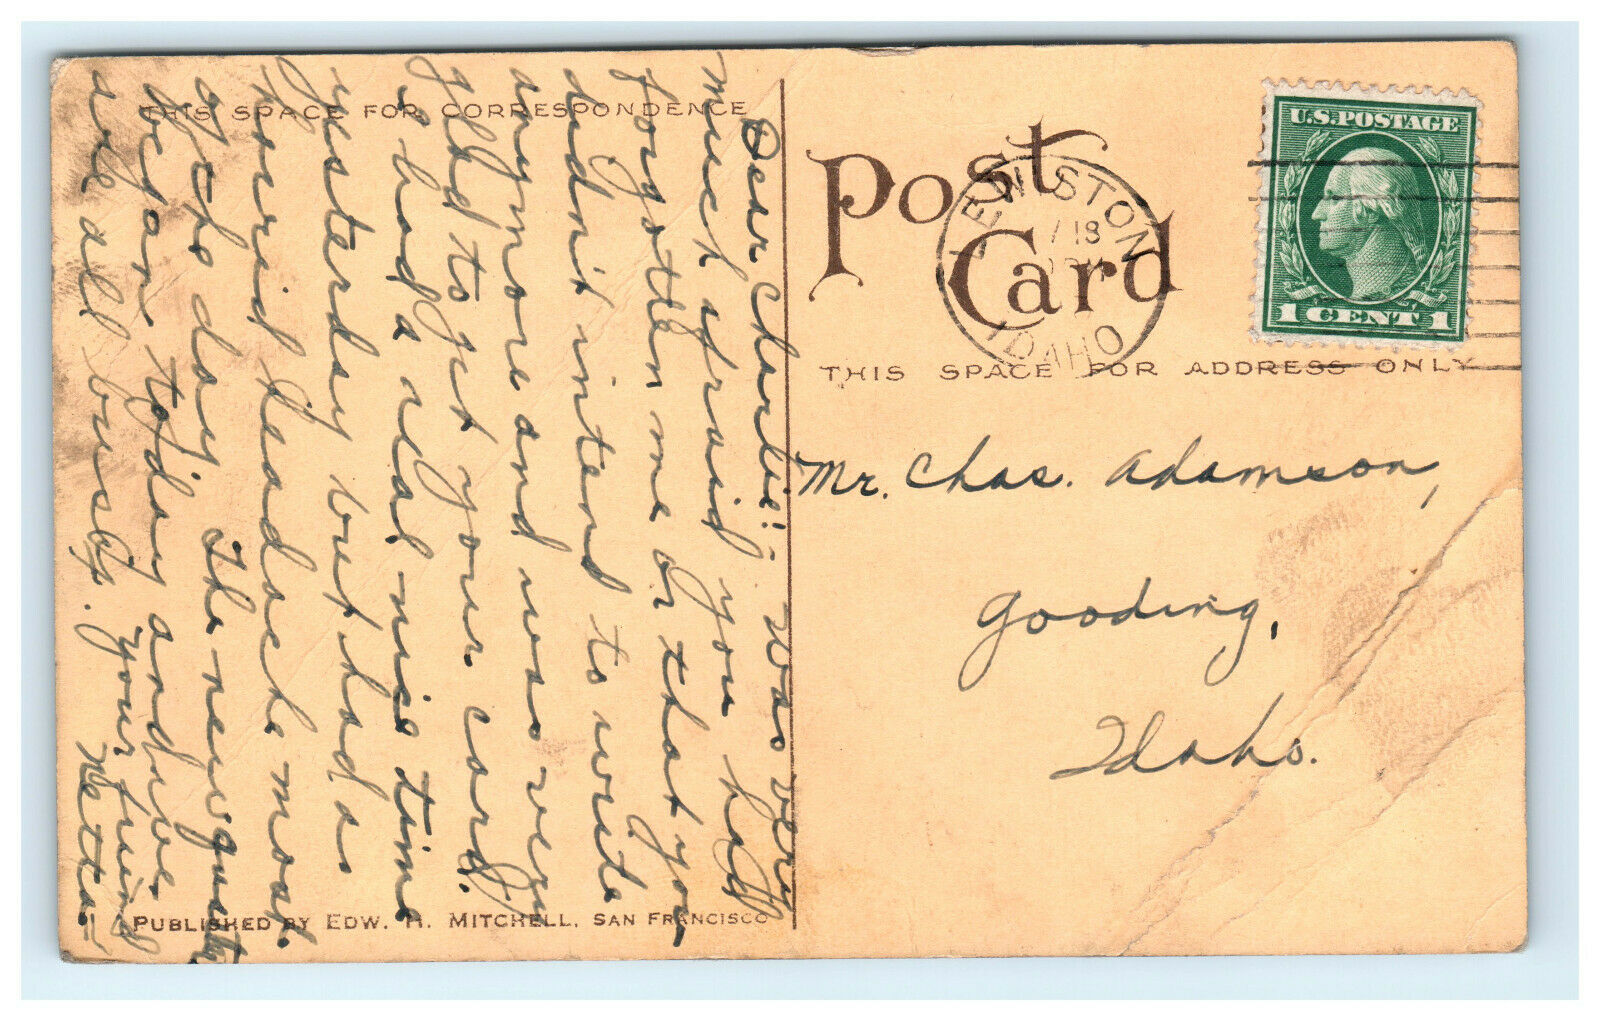 THIS SPACE FOR CORRESPONDENCE
Dear Charlie:- Was very
much afraid you had
forgotten me or that you
didn't intend to write
anymore and was very
glad to get your card.
I had a real nice time
yesterday but had a
horrid headache most.
of the day. The new quarter
began today and we
are all busy. Your friend
Netta.-
PUBLISHED BY EDW. H. MITCHELL, SAN FRANCISCO
Post
Card
LEWISTON
18
IDAHO
U.S. POSTAGE
1 CENT 1
THIS SPACE FOR ADDRESS ONLY
Mr. Chas. Adamson,
Gooding,
Idaho.